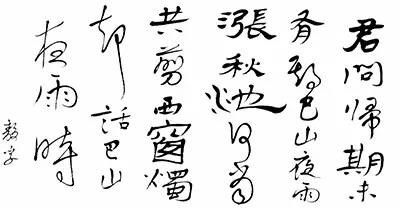 君問歸期未
有期巴山夜雨
漲秋池何當
共剪西窗燭
却話巴山
夜雨時